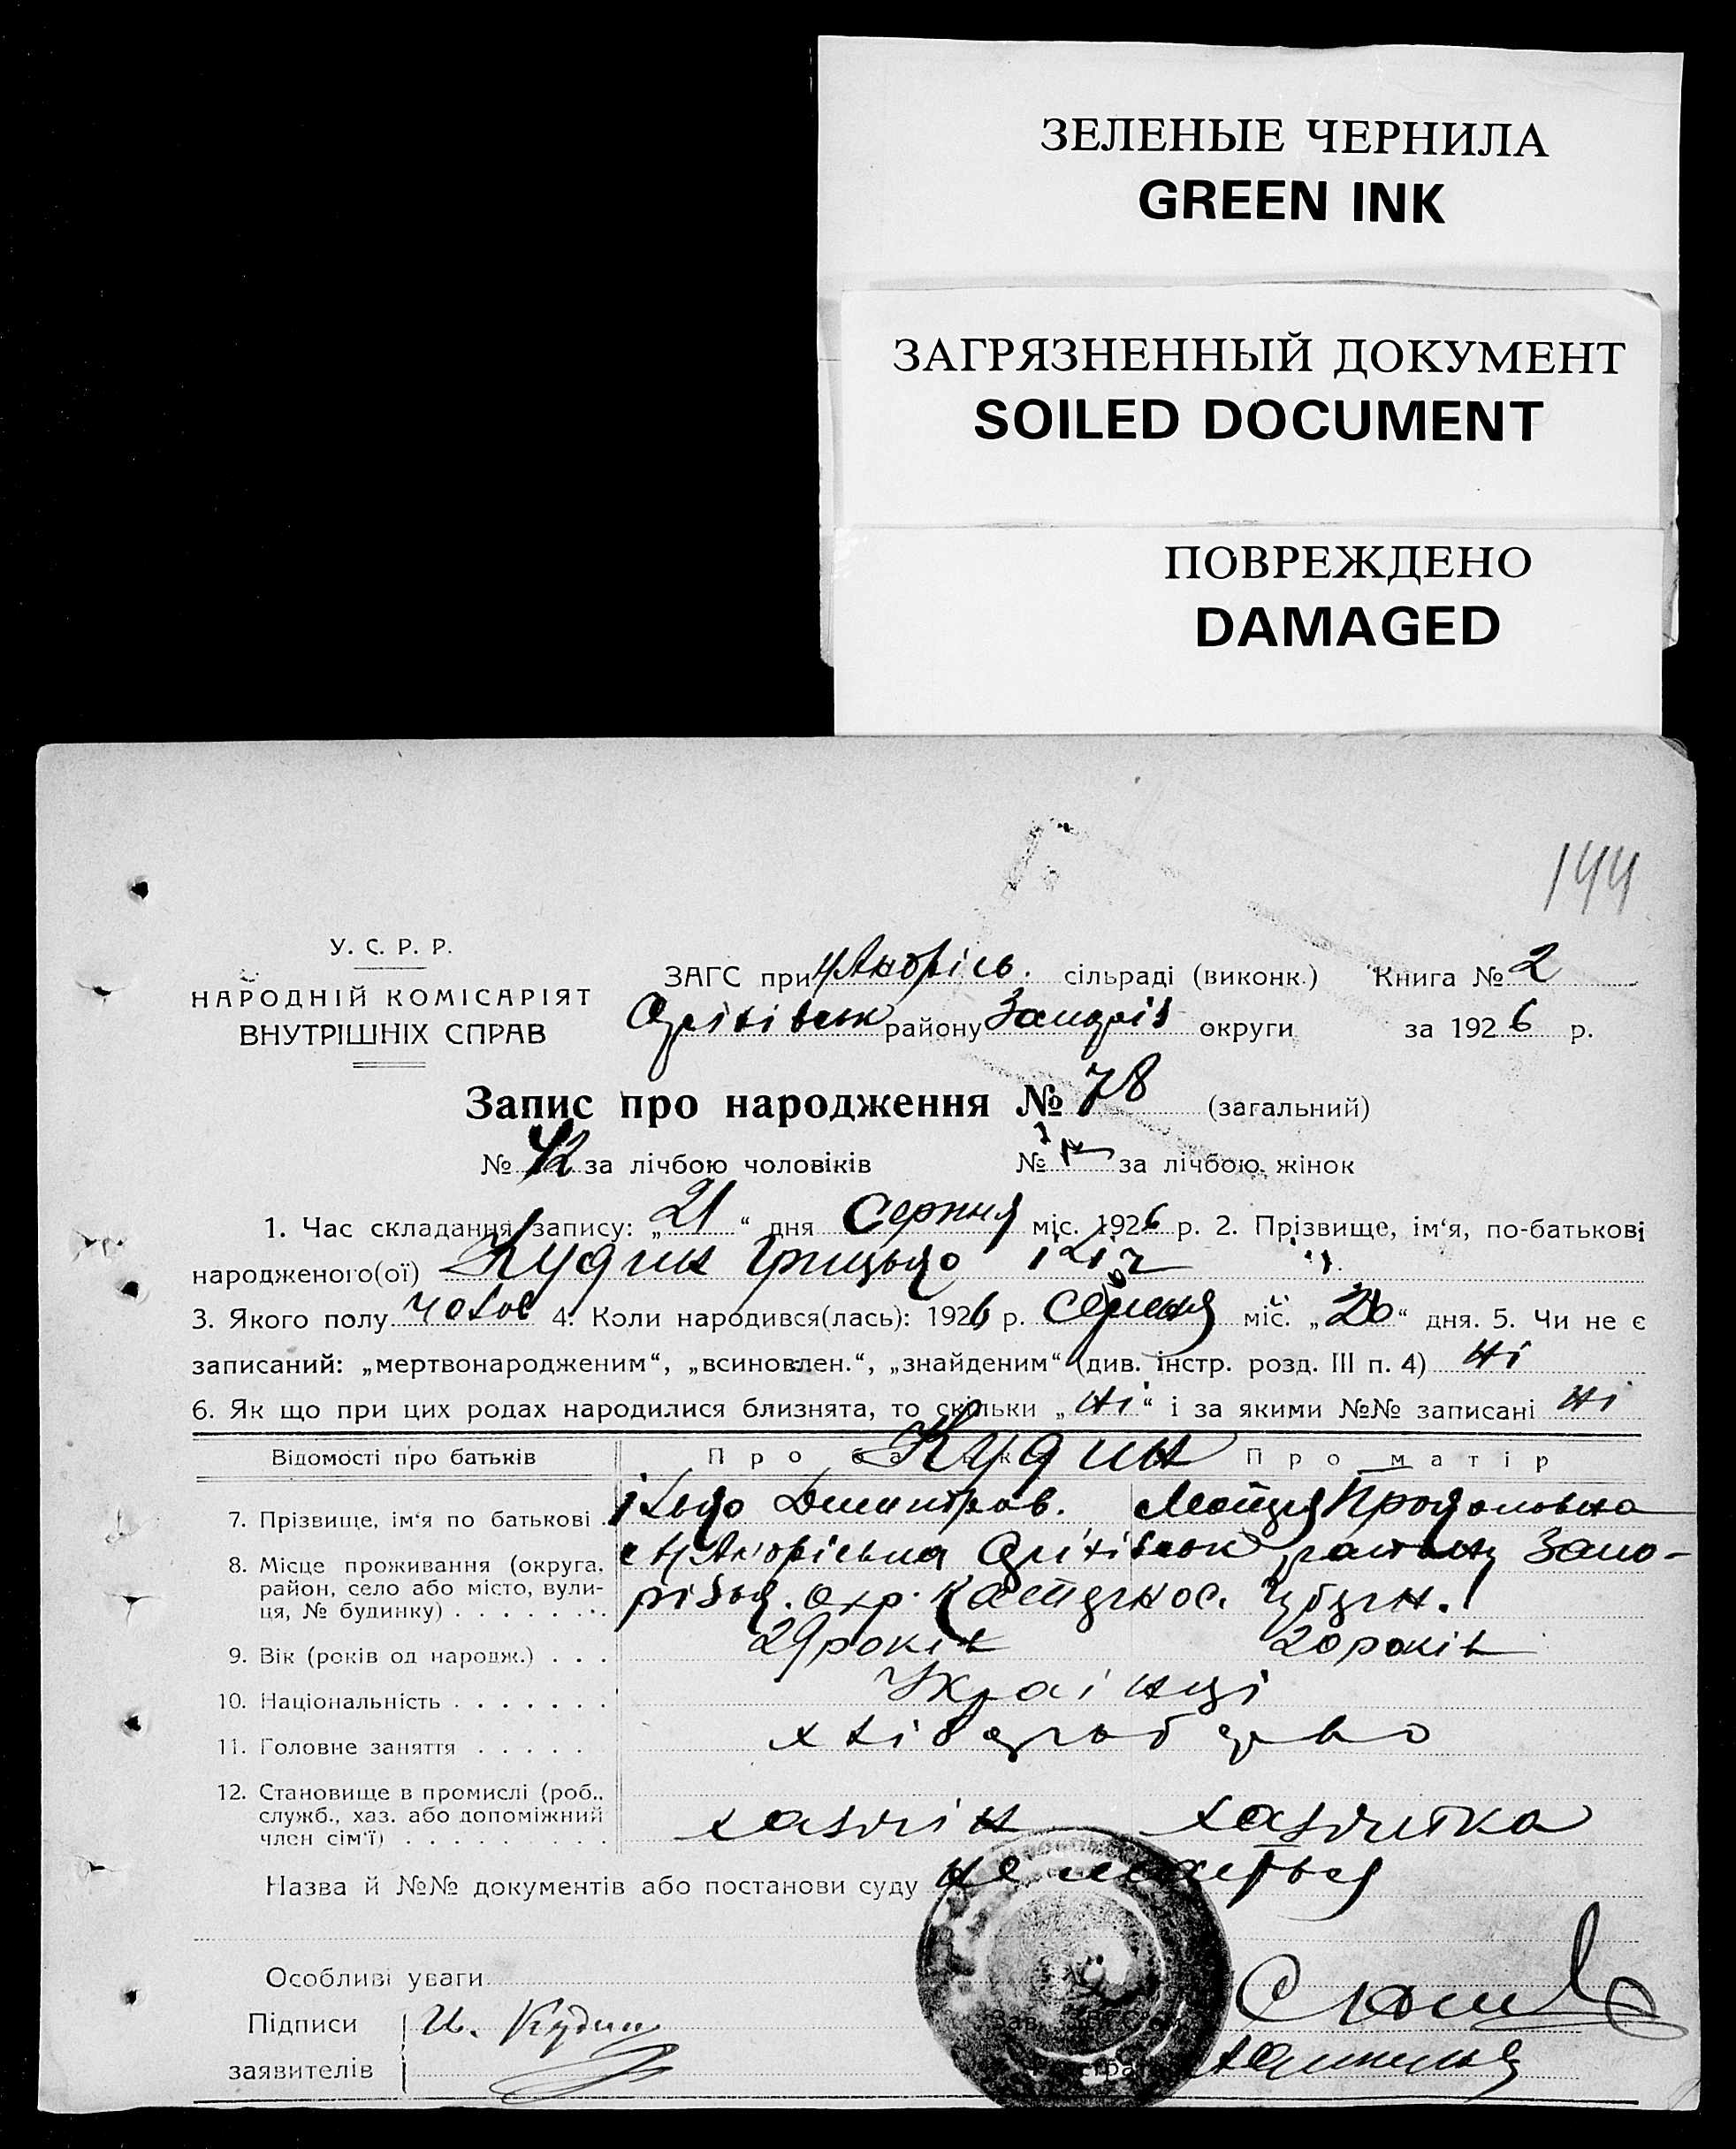 ЗЕЛЕНЫЕ ЧЕРНИЛА
GREEN INK
ЗАГРЯЗНЕННЫЙ ДОКУМЕНТ
SOILED DOCUMENT
ПОВРЕЖДЕНО
DAMAGED
144
У. С. Р. Р.
НАРОДНІЙ КОМІСАРІЯТ
ВНУТРІШНІХ СПРАВ
ЗАГС при сільраді (виконк.) Книга № 2
Оріхівськ району Запоріз округи за 1926 р.
Запис про народження № 78 (загальний)
№ 42 за лічбою чоловіків № за лічбою жінок
1. Час складання запису: „21“ дня Серпня міс. 1926 р. 2. Прізвище, ім'я, по-батькові
народженого(ої) Кудин Грицько ілліч
3. Якого полу чолов 4. Коли народився(лась): 1926 р. Серпня міс. „20“ дня. 5. Чи не є
записаний: „мертвонародженим“, „всиновлен.“, „знайденим“ (див. інстр. розд. III п. 4) Ні
6. Як що при цих родах народилися близнята, то скільки „Ні“ і за якими №№ записані Ні
Відомості про батьків Про батька Про матір
Кудин
7. Прізвище, ім'я по батькові Ілько Дмитров.
8. Місце проживання (округа, район, село або місто, вулиця, № будинку) Оріхівськ району Запо-
різьк. окр.
9. Вік (років од народж.) 29 років 20 років
10. Національність Українці
11. Головне заняття хліборобство
12. Становище в промислі (роб., служб., хаз. або допоміжний член сім'ї) хазяїн хазяйка
Назва й №№ документів або постанови суду не мається
Особливі уваги
Підписи И. Кудин
заявителів